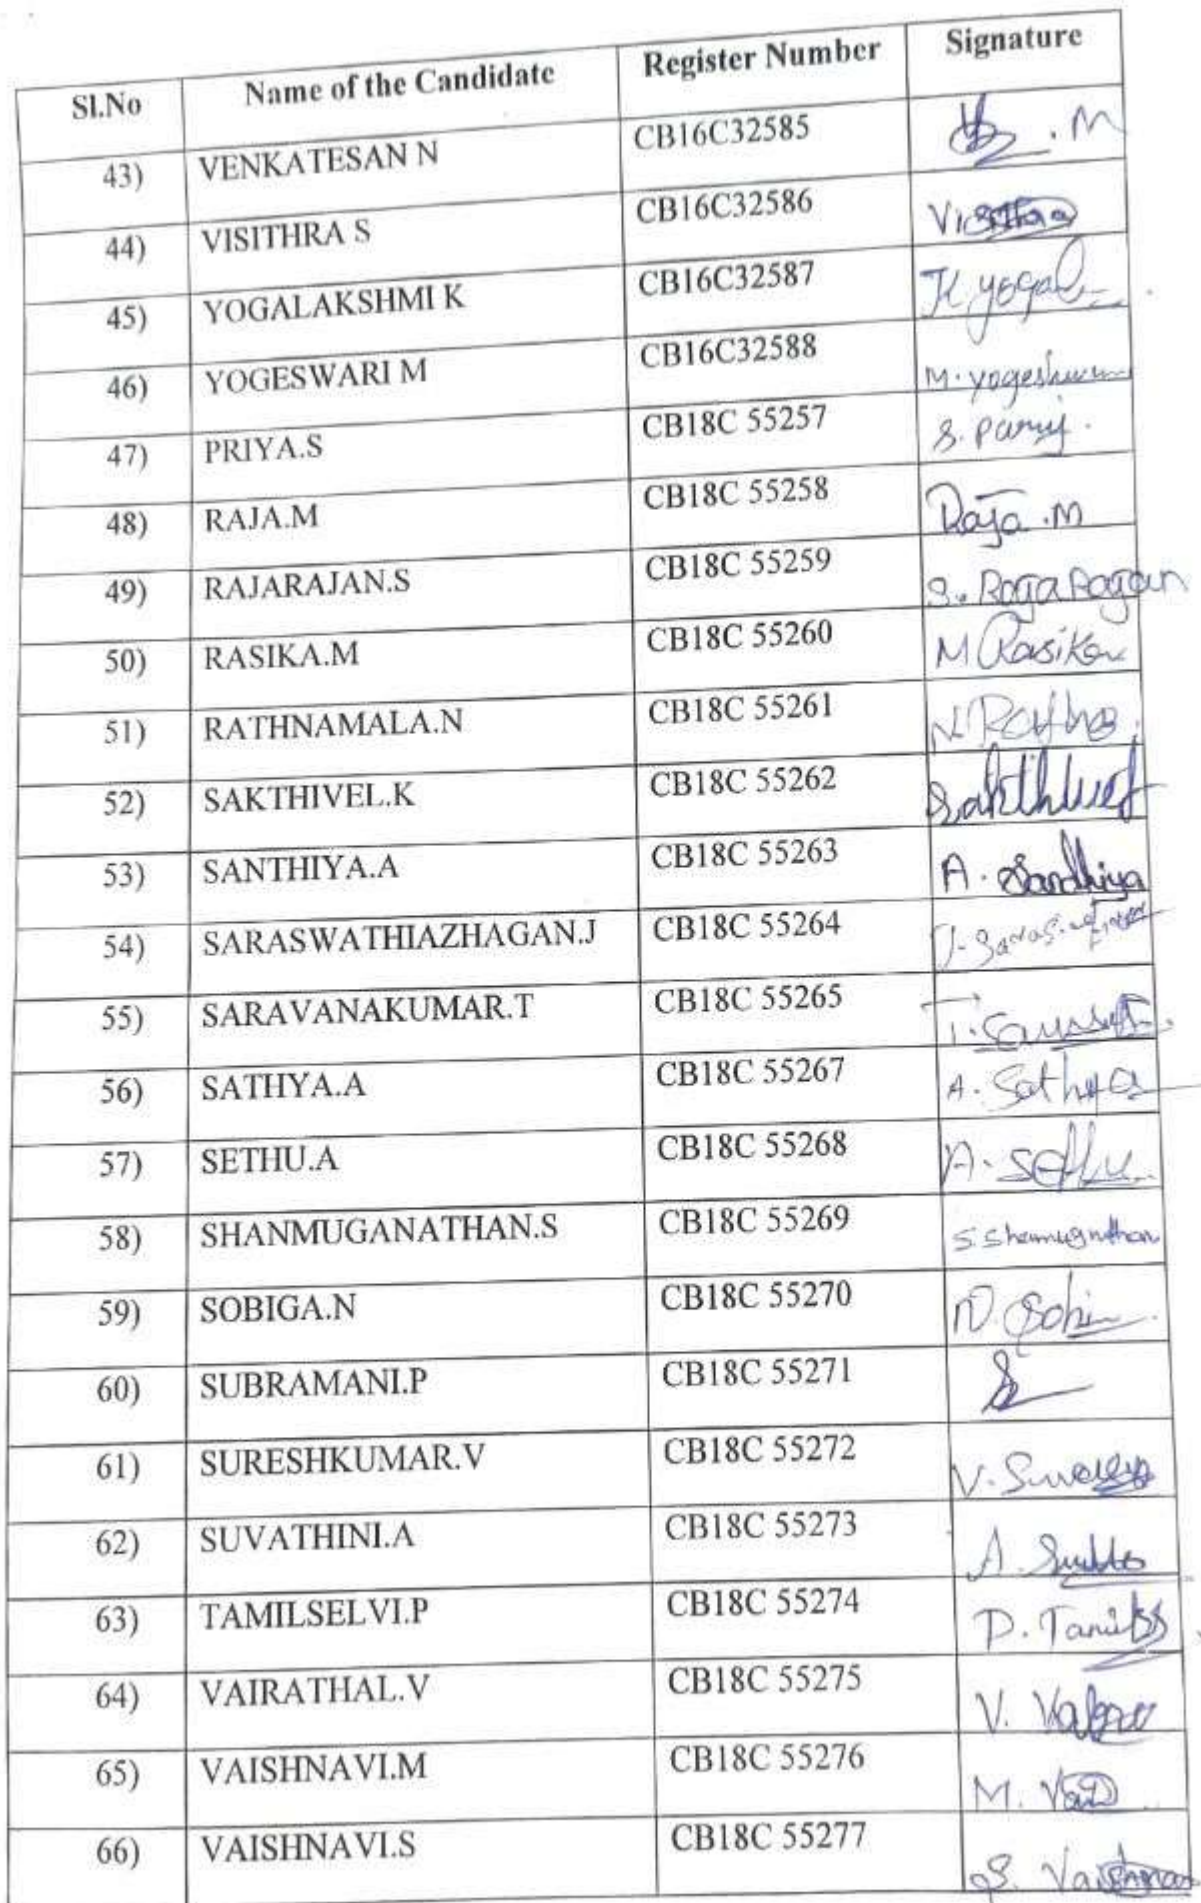 Sl.No Name of the Candidate Register Number Signature
43) VENKATESAN N CB16C32585 . M
44) VISITHRA S CB16C32586
45) YOGALAKSHMI K CB16C32587 K yogal
46) YOGESWARI M CB16C32588 M. yogeshwari
47) PRIYA.S CB18C 55257 S.
48) RAJA.M CB18C 55258 Raja .M
49) RAJARAJAN.S CB18C 55259 S. RajaRajan
50) RASIKA.M CB18C 55260 M Rasika
51) RATHNAMALA.N CB18C 55261 N. Rathna
52) SAKTHIVEL.K CB18C 55262 Sakthivel
53) SANTHIYA.A CB18C 55263 A. Sandhiya
54) SARASWATHIAZHAGAN.J CB18C 55264 J.
55) SARAVANAKUMAR.T CB18C 55265 T.
56) SATHYA.A CB18C 55267 A. Sathya
57) SETHU.A CB18C 55268 A. Sethu
58) SHANMUGANATHAN.S CB18C 55269 S. Shamugnathan
59) SOBIGA.N CB18C 55270 N.
60) SUBRAMANI.P CB18C 55271
61) SURESHKUMAR.V CB18C 55272 V.
62) SUVATHINI.A CB18C 55273 A.
63) TAMILSELVI.P CB18C 55274 P.
64) VAIRATHAL.V CB18C 55275 V.
65) VAISHNAVI.M CB18C 55276 M.
66) VAISHNAVI.S CB18C 55277 S.